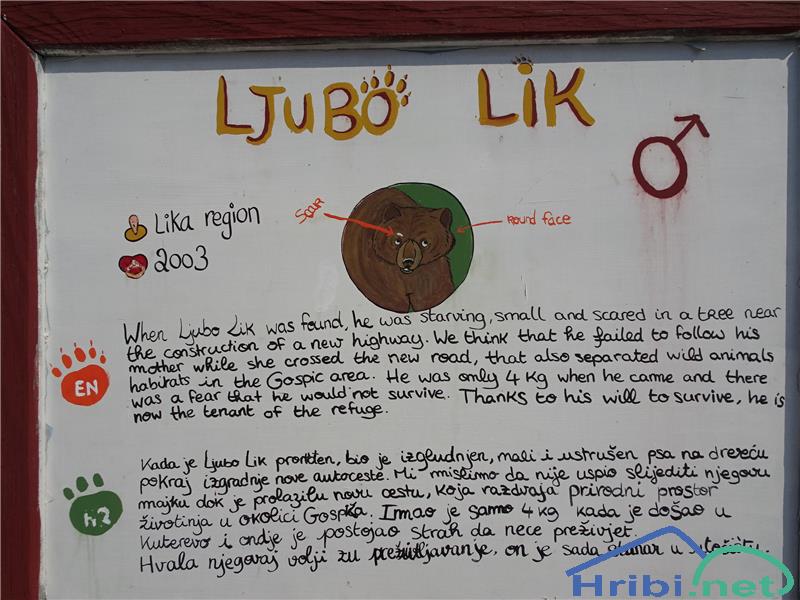 LJUBO LIK
Lika region
2003
Scar
Round face
When Ljubo Lik was found, he was starving, small and scared in a tree near
the construction of a new highway. We think that he failed to follow his
mother while she crossed the new road, that also separated wild animals
habitats in the Gospic area. He was only 4 Kg when he came and there
was a fear that he would not survive. Thanks to his will to survive, he is
now the tenant of the refuge.
EN
Kada je Ljubo Lik bio je izgludnjen, mali i ustrušen psa na dreveću
pokraj izgradnje nove autoceste. Mi mislimo da nije uspio slijediti njegovu
majku dok je prolazilu novu cestu, koja razdvaja prirodni prostor
životinja u okolici Gospića. Imao je samo 4 kg kada je došao u
Kuterevo i ondje je postojao strah da nece preživjet.
Hvala njegovoj volji zu preživljavanje, on je sada u
HR
Hribi.net